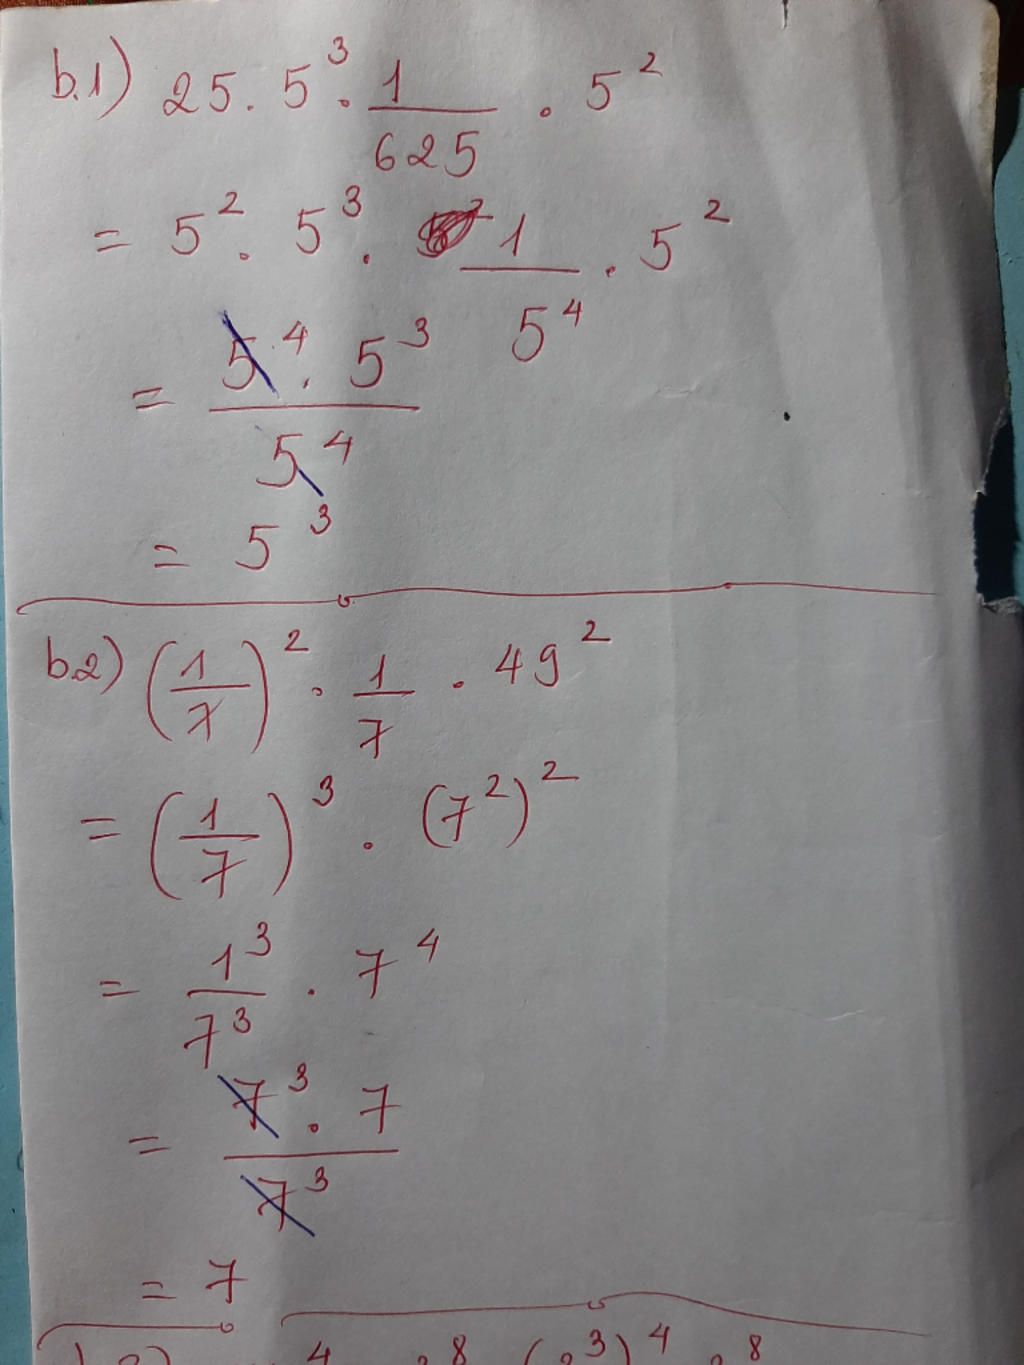 b.1) 25 . 5³ . 1/625 . 5²
= 5² . 5³ . 1/5⁴ . 5²
= (5⁴ . 5³)/5⁴
= 5³
b.2) (1/7)² . 1/7 . 49²
= (1/7)³ . (7²)²
= 1³/7³ . 7⁴
= (7³ . 7)/7³
= 7